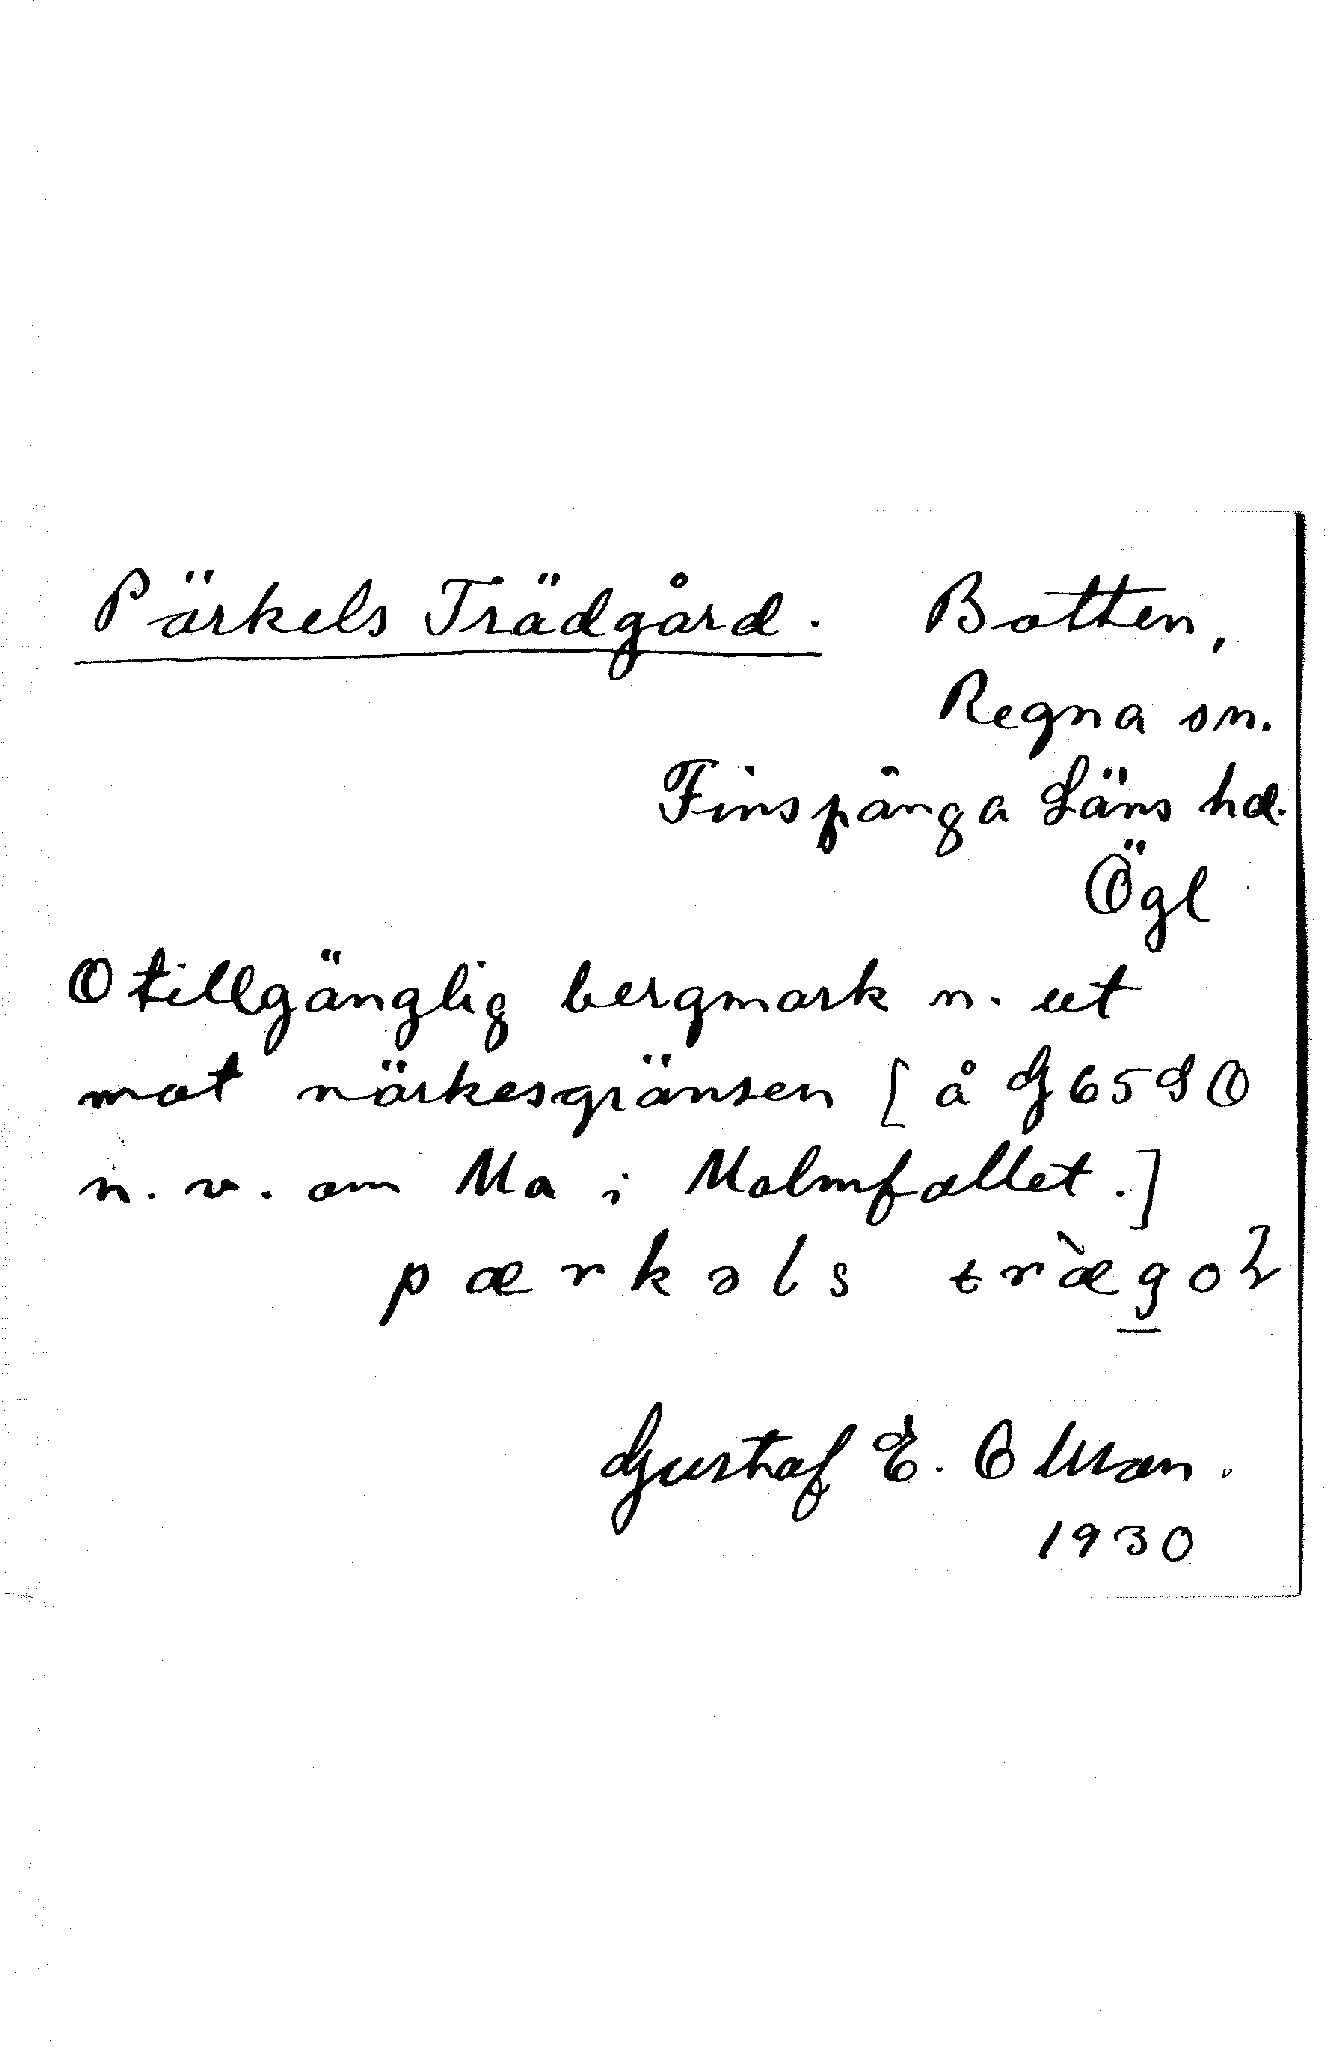 Pärkels Trädgård. Botten,
Regna sn.
Finspånga Läns hd.
Ögl
Otillgänglig bergmark n. ut
mot närkesgränsen [å G65SO
n.v. om Ma i Malmfallet.]
pærkəls træ̀go
Gustaf E. Olsson.
1930